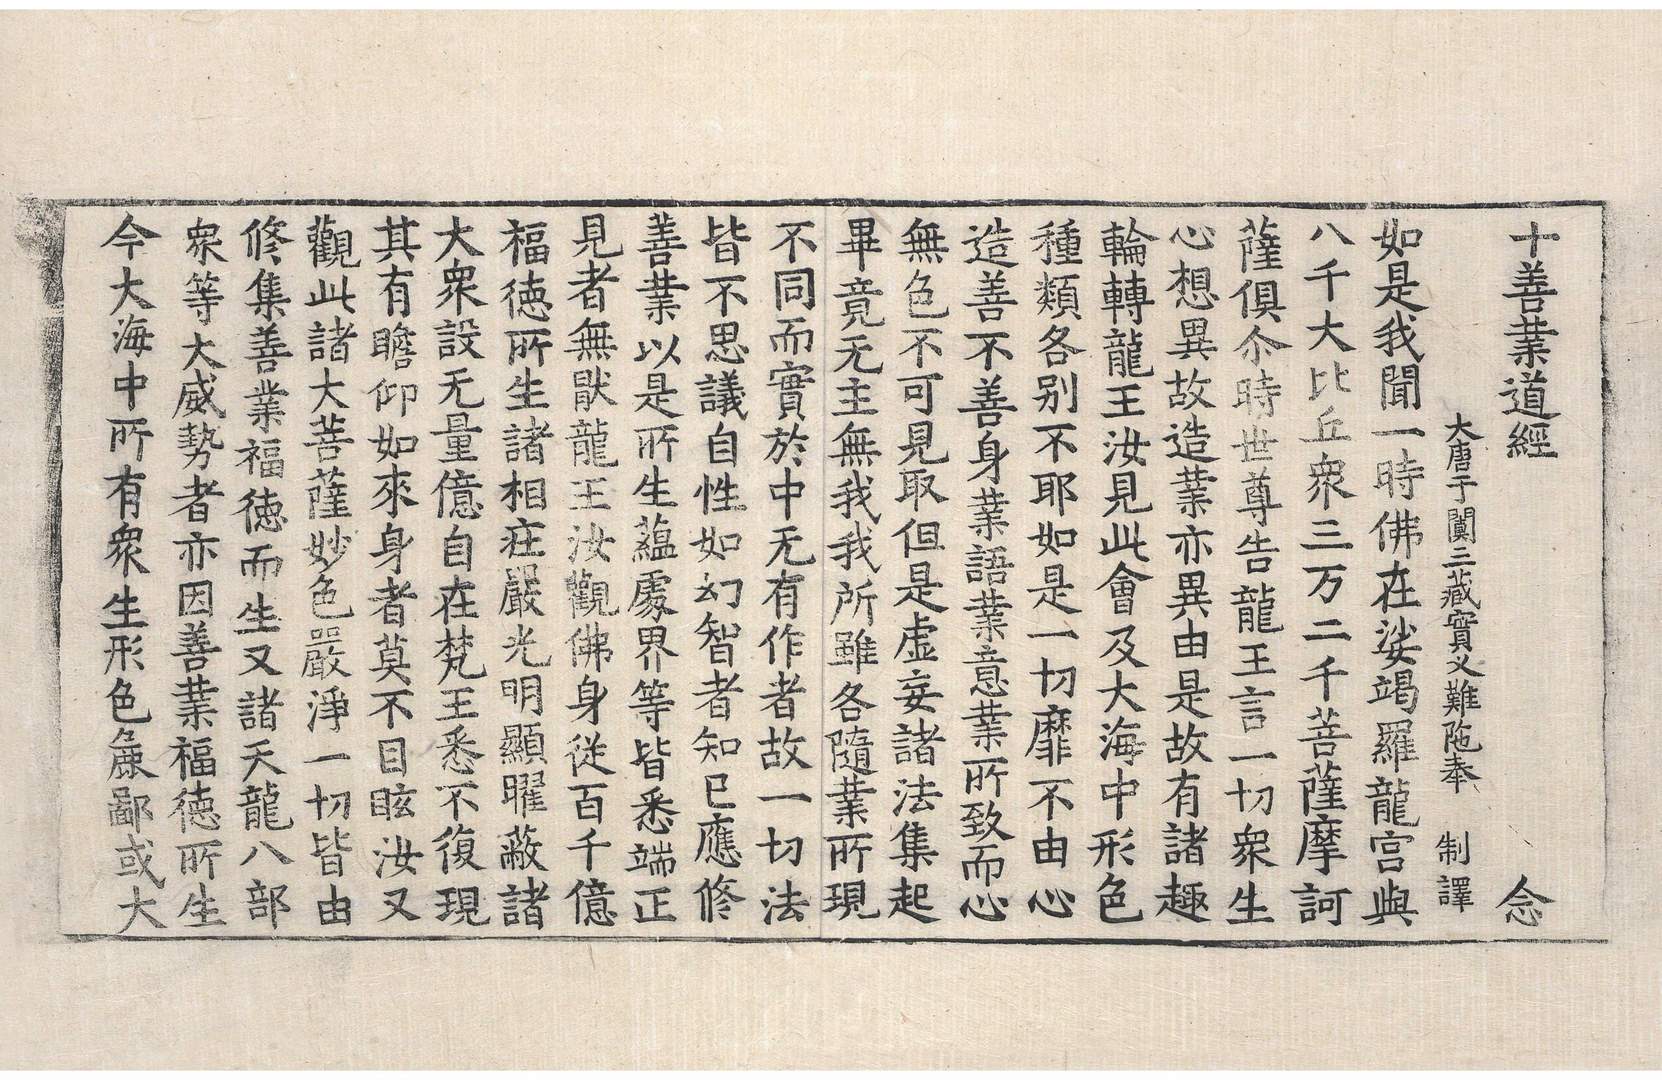 十善業道經 念
大唐于闐三藏實叉難陁奉 制譯
如是我聞一時佛在娑竭羅龍宮與
八千大比丘衆三万二千菩薩摩訶
薩俱尒時世尊告龍王言一切衆生
心想異故造業亦異由是故有諸趣
輪轉龍王汝見此會及大海中形色
種類各别不耶如是一切靡不由心
造善不善身業語業意業所致而心
無色不可見取但是虛妄諸法集起
畢竟无主無我我所雖各隨業所現
不同而實於中无有作者故一切法
皆不思議自性如幻智者知已應修
善業以是所生蘊處界等皆悉端正
見者無猒龍王汝觀佛身從百千億
福德所生諸相莊嚴光明顯曜蔽諸
大衆設无量億自在梵王悉不復現
其有瞻仰如來身者莫不目眩汝又
觀此諸大菩薩妙色嚴淨一切皆由
修集善業福德而生又諸天龍八部
衆等大威勢者亦因善業福德所生
今大海中所有衆生形色麁鄙或大